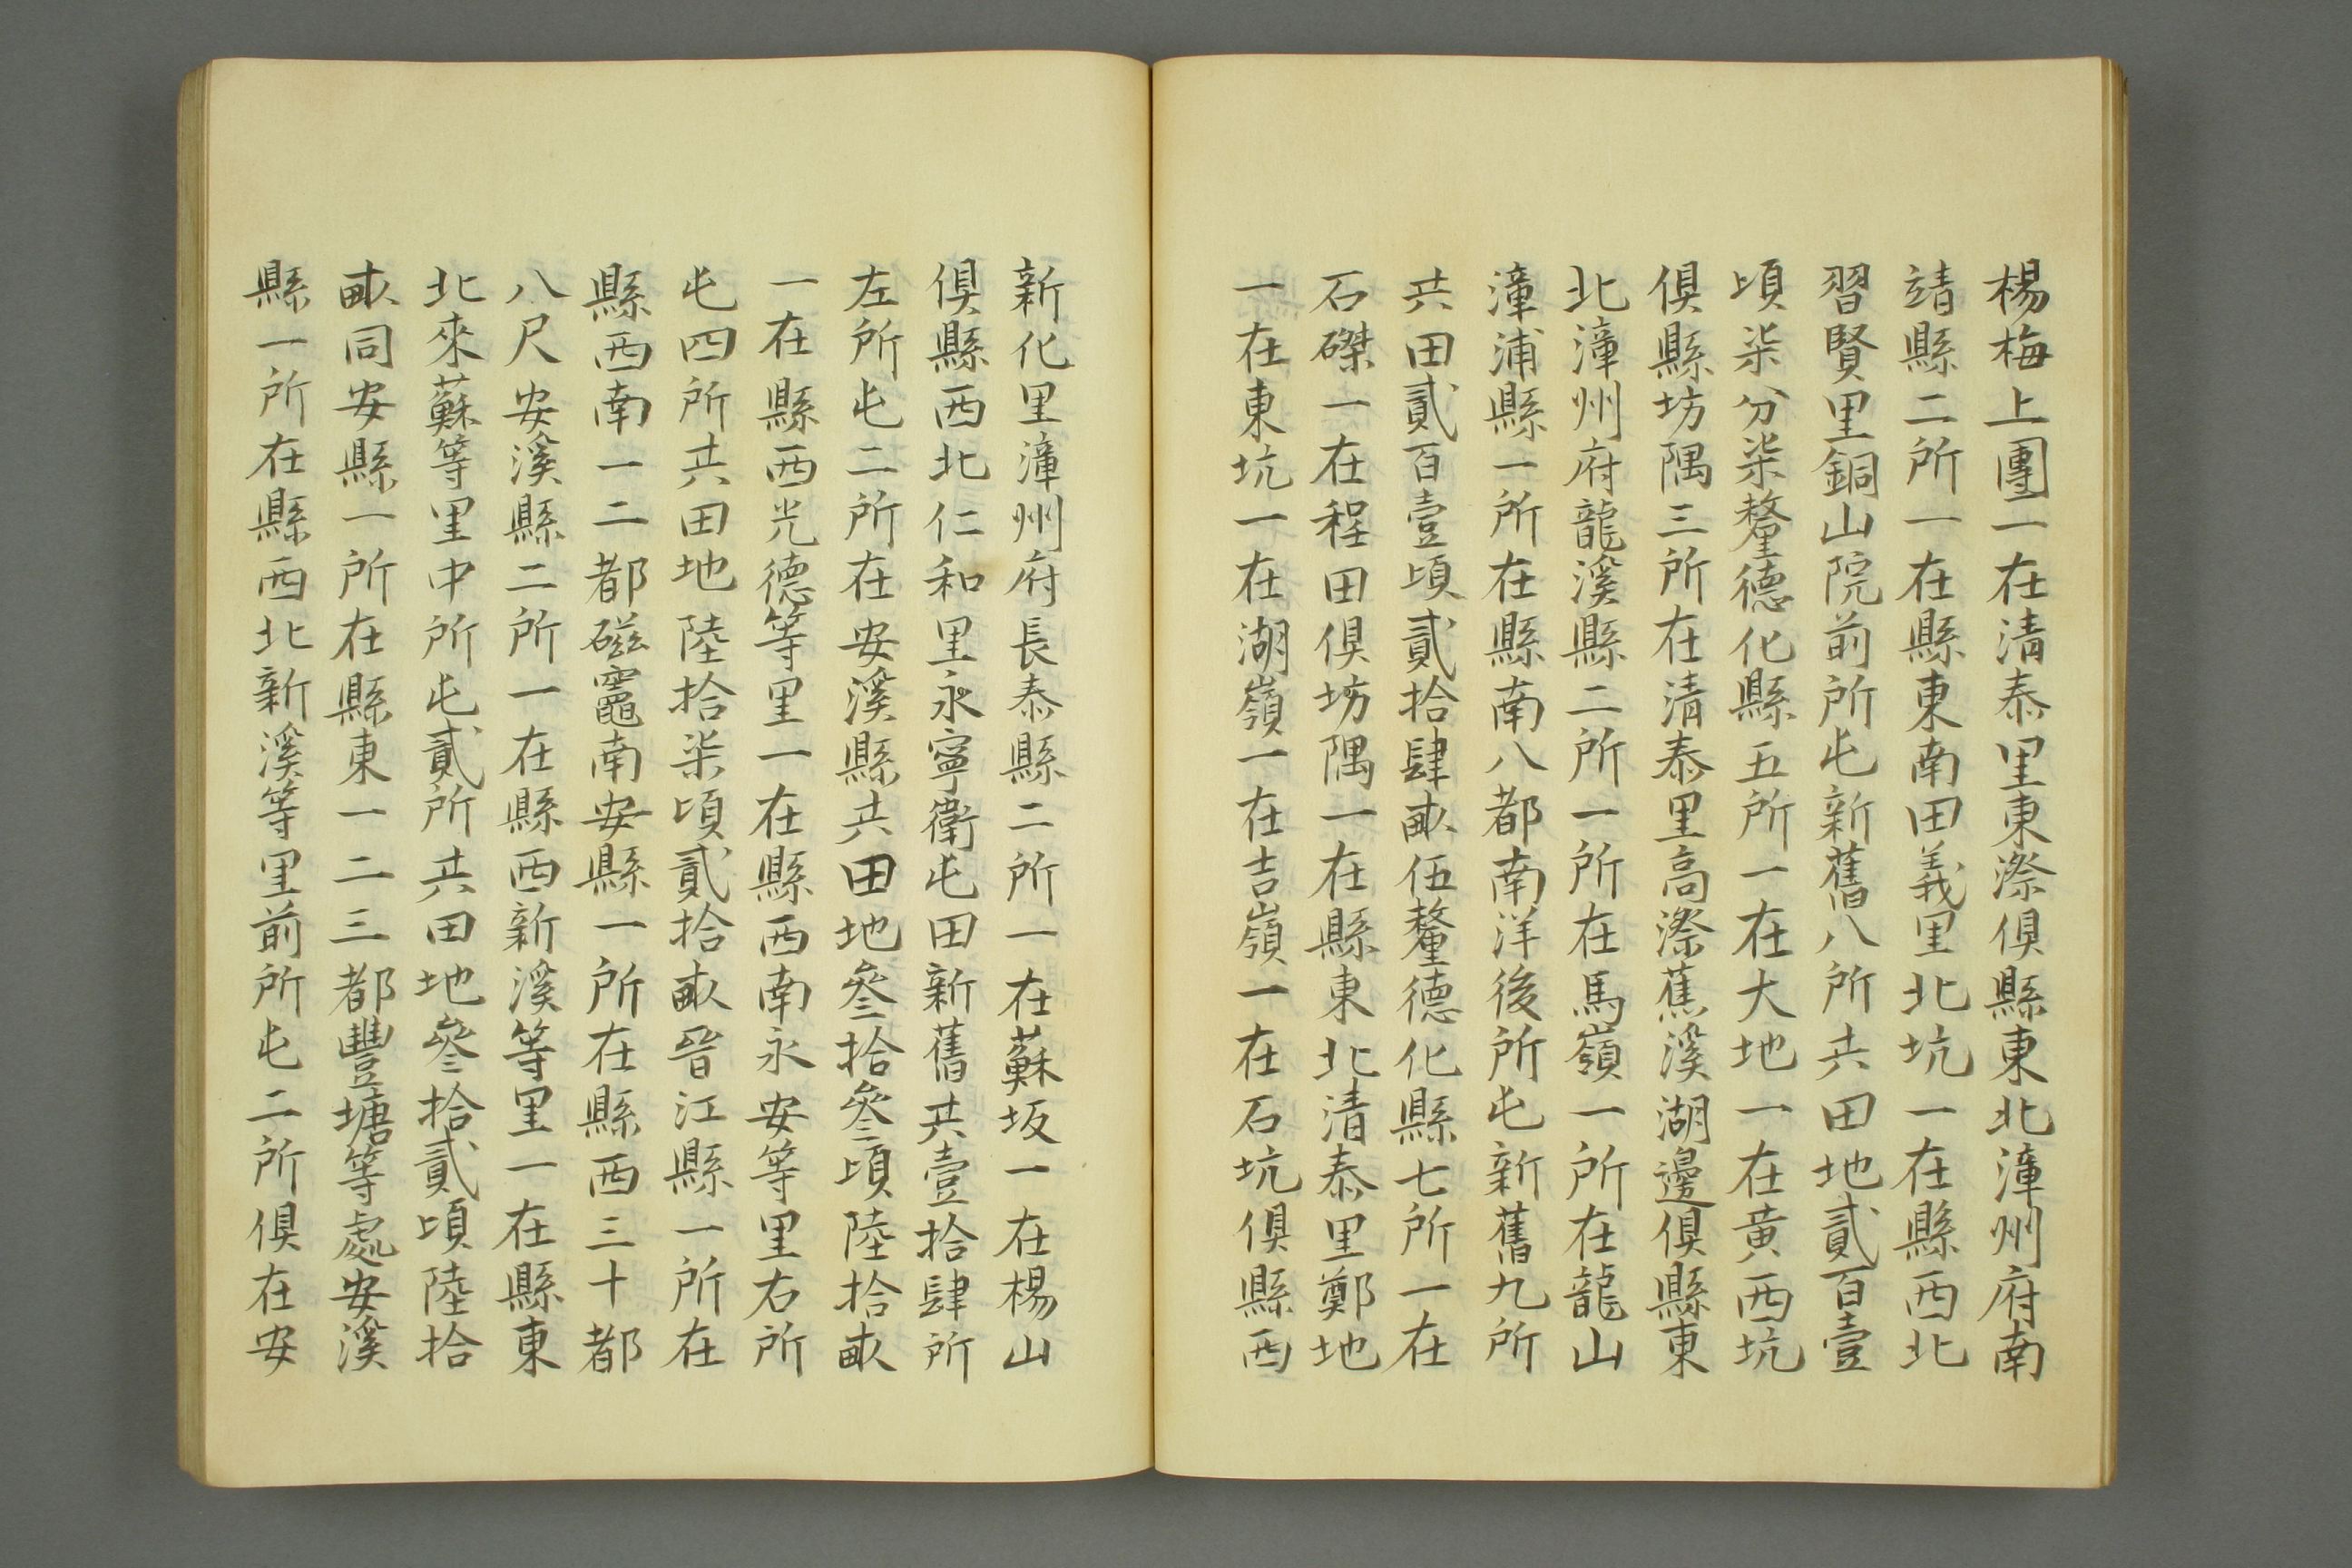 楊梅上團一在清泰里東漈俱縣東北漳州府南
靖縣二所一在縣東南田義里北坑一在縣西北
習賢里銅山院前所屯新舊八所共田地貳百壹
頃柒分柒釐德化縣五所一在大地一在黃西坑
俱縣坊隅三所在清泰里高漈蕉溪湖邊俱縣東
北漳州府龍溪縣二所一所在馬嶺一所在龍山
漳浦縣一所在縣南八都南洋後所屯新舊九所
共田貳百壹頃貳拾肆畝伍釐德化縣七所一在
石磔一在程田俱坊隅一在縣東北清泰里鄭地
一在東坑一在湖嶺一在吉嶺一在石坑俱縣西
新化里漳州府長泰縣二所一在蘇坂一在楊山
俱縣西北仁和里永寧衛屯田新舊共壹拾肆所
左所屯二所在安溪縣共田地叄拾叄頃陸拾畝
一在縣西光德等里一在縣西南永安等里右所
屯四所共田地陸拾柒頃貳拾畝晉江縣一所在
縣西南一二都磁竈南安縣一所在縣西三十都
八尺安溪縣二所一在縣西新溪等里一在縣東
北來蘇等里中所屯貳所共田地叄拾貳頃陸拾
畝同安縣一所在縣東一二三都豐塘等處安溪
縣一所在縣西北新溪等里前所屯二所俱在安